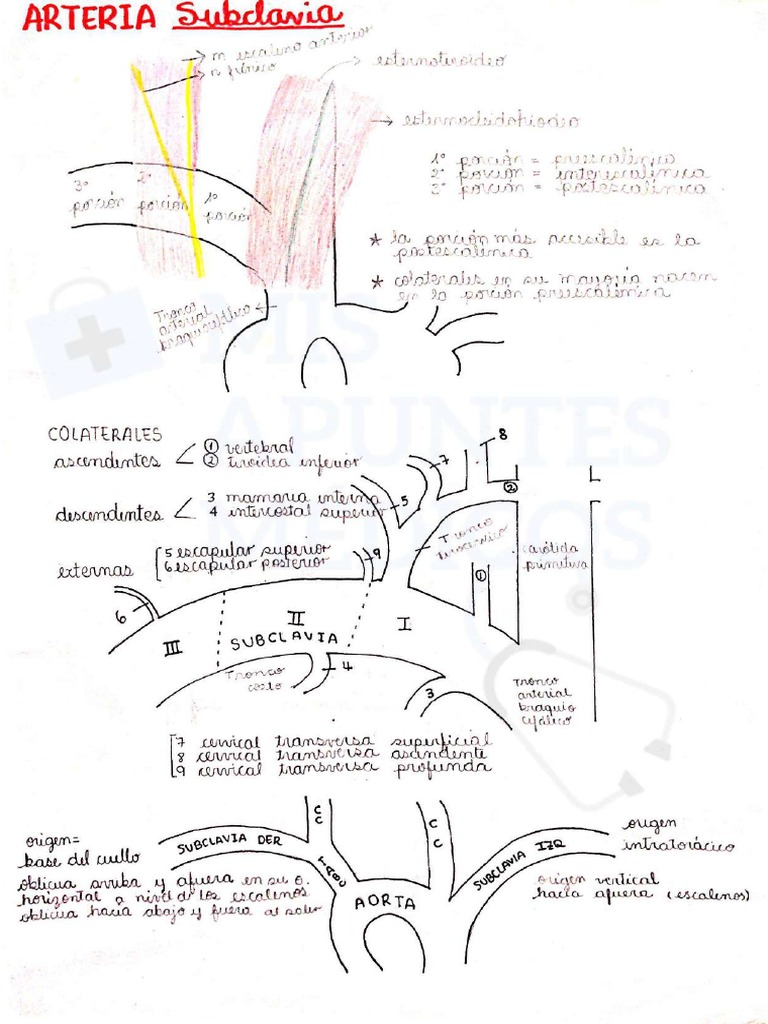 ARTERIA Subclavia
m escaleno anterior
n frénico
esternotiroideo
esternocleidohioideo
1º porción = preescalénica
2º porción = interescalénica
3º porción = postescalénica
3º porción
2º porción
1º porción
* la porción más accesible es la
postescalénica
* colaterales en su mayoría nacen
en la porción preescalénica
Tronco
arterial
braquiocefálico
MIS
APUNTES
MEDICOS
COLATERALES
ascendentes
① vertebral
② tiroidea inferior
descendentes
3 mamaria interna
4 intercostal superior
externas
5 escapular superior
6 escapular posterior
7
8
②
5
9
Tronco
carótida
primitiva
①
6
III
II
I
SUBCLAVIA
Tronco
costo
4
3
Tronco
arterial
braquio
cefálico
7 cervical transversa superficial
8 cervical transversa ascendente
9 cervical transversa profunda
origen=
base del cuello
oblicua arriba y afuera en su o.
horizontal a nivel de los escalenos
oblicua hacia abajo y fuera al salir
SUBCLAVIA DER
CC
TABC
AORTA
CC
SUBCLAVIA IZQ
origen
intratorácico
origen vertical
hacia afuera (escalenos)